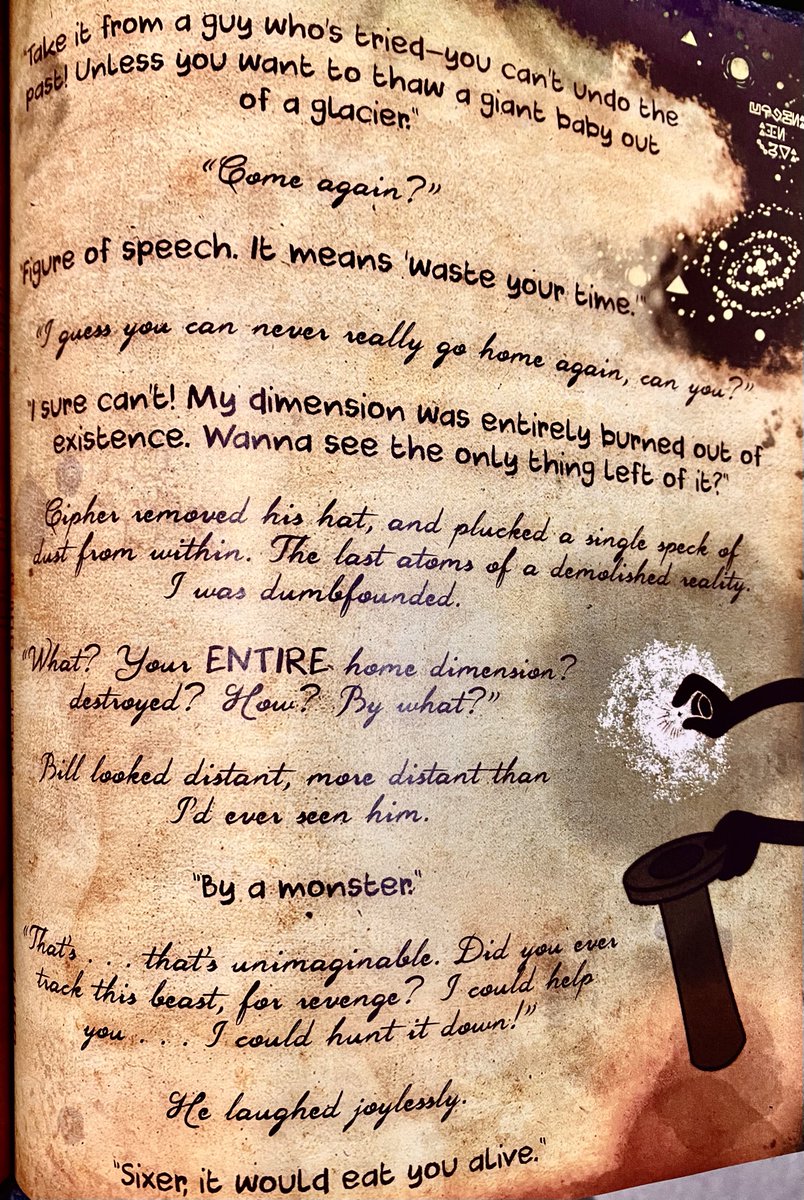 "Take it from a guy who's tried—you can't undo the
past! Unless you want to thaw a giant baby out
of a glacier."
"Come again?"
"Figure of speech. It means 'waste your time.'"
"I guess you can never really go home again, can you?"
"I sure can't! My dimension was entirely burned out of
existence. Wanna see the only thing left of it?"
Cipher removed his hat, and plucked a single speck of
dust from within. The last atoms of a demolished reality.
I was dumbfounded.
"What? Your ENTIRE home dimension?
destroyed? How? By what?"
Bill looked distant, more distant than
I'd ever seen him.
"By a monster."
"That's . . . that's unimaginable. Did you ever
track this beast, for revenge? I could help
you . . . I could hunt it down!"
He laughed joylessly.
"Sixer, it would eat you alive."